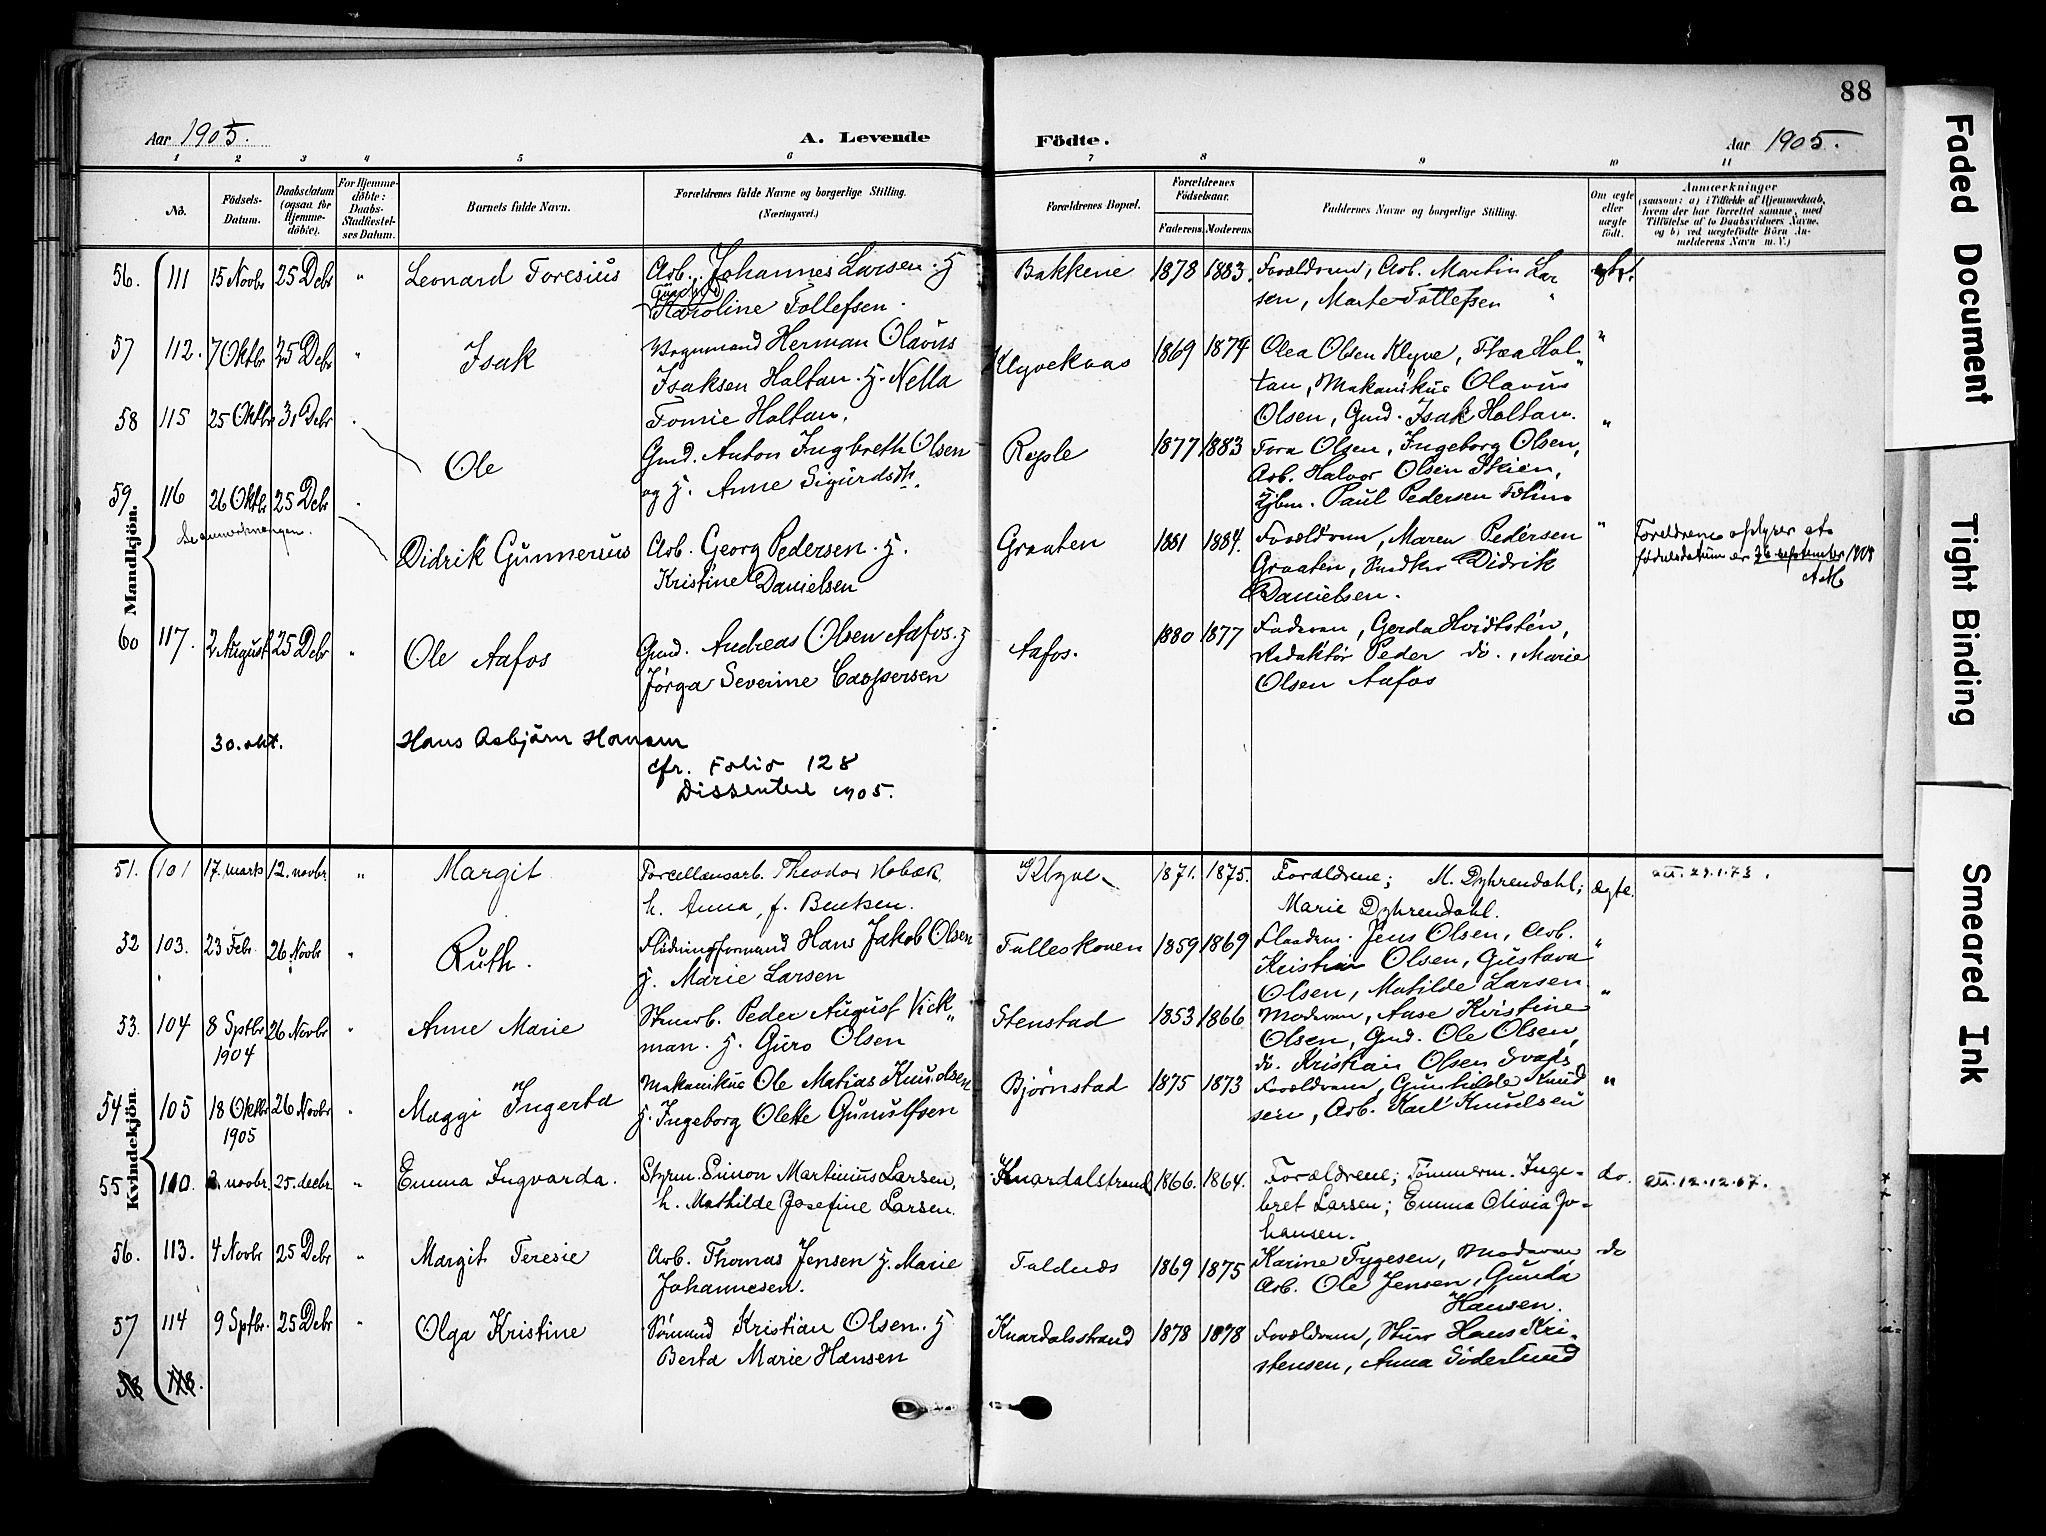 88
Aar 1905.
A. Levende
Födte.
Aar 1905.
1 2 3 4 5 6 7 8 9 10 11
No.
Födsels-
Datum.
Daabsdatum
(ogsaa for
Hjemme-
döbte).
For Hjemme-
döbte:
Daabs-
Stadfæstel-
ses Datum.
Barnets fulde Navn.
Forældrenes fulde Navne og borgerlige Stilling.
(Næringsvei.)
Forældrenes Bopæl.
Forældrenes
Födselsaar.
Faderens.
Moderens.
Faddernes Navne og borgerlige Stilling.
Om ægte
eller
uægte
födt.
Anmærkninger
(saasom: a) i Tilfælde af Hjemmedaab,
hvem der har forrettet samme, med
Tilföielse af to Daabsvidners Navne,
og b) ved uægtefödte Börn An-
melderens Navn m. V.)
Mandkjön.
56. 111 15 Novbr 25 Debr " Leonard Toresius
Arb. Johannes Larsen. H
Karoline Tollefsen.
Bakkene 1878 1883.
Forældrene, Arb. Martin Lar
sen, Marte Tollefsen
57 112. 7 Oktbr 25 Debr " Isak
Vognmand Herman Olavus
Isaksen Haltan. H. Nella
Tomie Haltan.
Klyvekaas 1869 1874
Olea Olsen Klyve, Thea Hal-
tan, Makanikus Olavus
Olsen, Gmd. Isak Haltan.
"
58 115 25 Oktbr 31 Debr Ole
Gmd. Anton Ingbreth Olsen
og H. Anne Sigurdsdtr.
1877 1883
Tora Olsen, Ingeborg Olsen,
Arb. Halvor Olsen Skien,
Kjbm. Paul Pedersen
"
59. 116 26 Oktbr 25 Debr Didrik Gunnerius
Se anmerkningen.
Arb. Georg Pedersen. H.
Kristine Danielsen
Graaten 1881 1884.
Forældrene, Maren Pedersen
Graaten, Didrik
Danielsen.
"
Foreldrene oplyser at
fødselsdatum er 26 september 1905
60 117. 2 August 25 Debr " Ole Aafos
Gmd. Andreas Olsen Aafos. H
Jörga Severine Caspersen
Aafos. 1880 1877
Faderen, Gerda Hvidtsten,
Redaktör Peder do., Marie
Olsen Aafos
30. okt. Hans Asbjørn Hansen
cfr. Folio 128
Dissentere 1905.
Kvindekjön.
51. 101 17. marts 12. novbr. " Margit
Porcellænsarb. Theodor Hobæk,
h. Anna, f. Bentsen.
Klyve 1871. 1875.
Forældrene; M. Dyhrendahl;
Marie Dyhrendahl.
ægte.
att. 29.1.73.
52 103. 23 Febr. 26 Novbr " Ruth.
Flödningsformand Hans Jakob Olsen
H. Marie Larsen
Tolleskoven 1859 1869
Jens Olsen, Arb.
Kristian Olsen, Gustava
Olsen, Matilde Larsen
"
53. 104 8 Sptbr 26 Novbr " Anne Marie
1904
Peder August Vick-
man. H. Guro Olsen
Stenstad 1853 1866
Moderen, Aase Kristine
Olsen, Gmd. Ole Olsen,
do. Kristian Olsen
"
54 105 18 Oktbr 26 Novbr Maggi Ingerta
1905
Makanikus Ole Matias Knudsen
H. Ingeborg Olette Gunulfsen
Bjørnstad 1875 1873
Forældrene, Gunhilde Knud
sen, Arb. Karl Knudsen
"
55 110. novbr. 25. decbr. " Emma Ingvarda.
Styrm. Simon Martinius Larsen,
h. Mathilde Josefine Larsen.
Knardalstrand 1866. 1864.
Forældrene; Tømmerm. Inge-
bret Larsen; Emma Olivia Jo-
hansen.
do.
att. 12.12.67.
56. 113. 4 Novbr 25 Debr " Margit Teresie
Arb. Thomas Jensen H. Marie
Johannesen.
Faldnæs 1869 1875
Karine Tygesen, Moderen
Arb. Ole Jensen, Gunda
Hansen.
do
57 114 9 Sptbr. 25 Debr " Olga Kristine
Sömand Kristian Olsen. H
Berta Marie Hansen
Knardalsstrand 1878 1878
Forældrene, Hans Kri-
stensen, Anna Söderlund
58 118.
Faded Document
Tight Binding
Smeared Ink